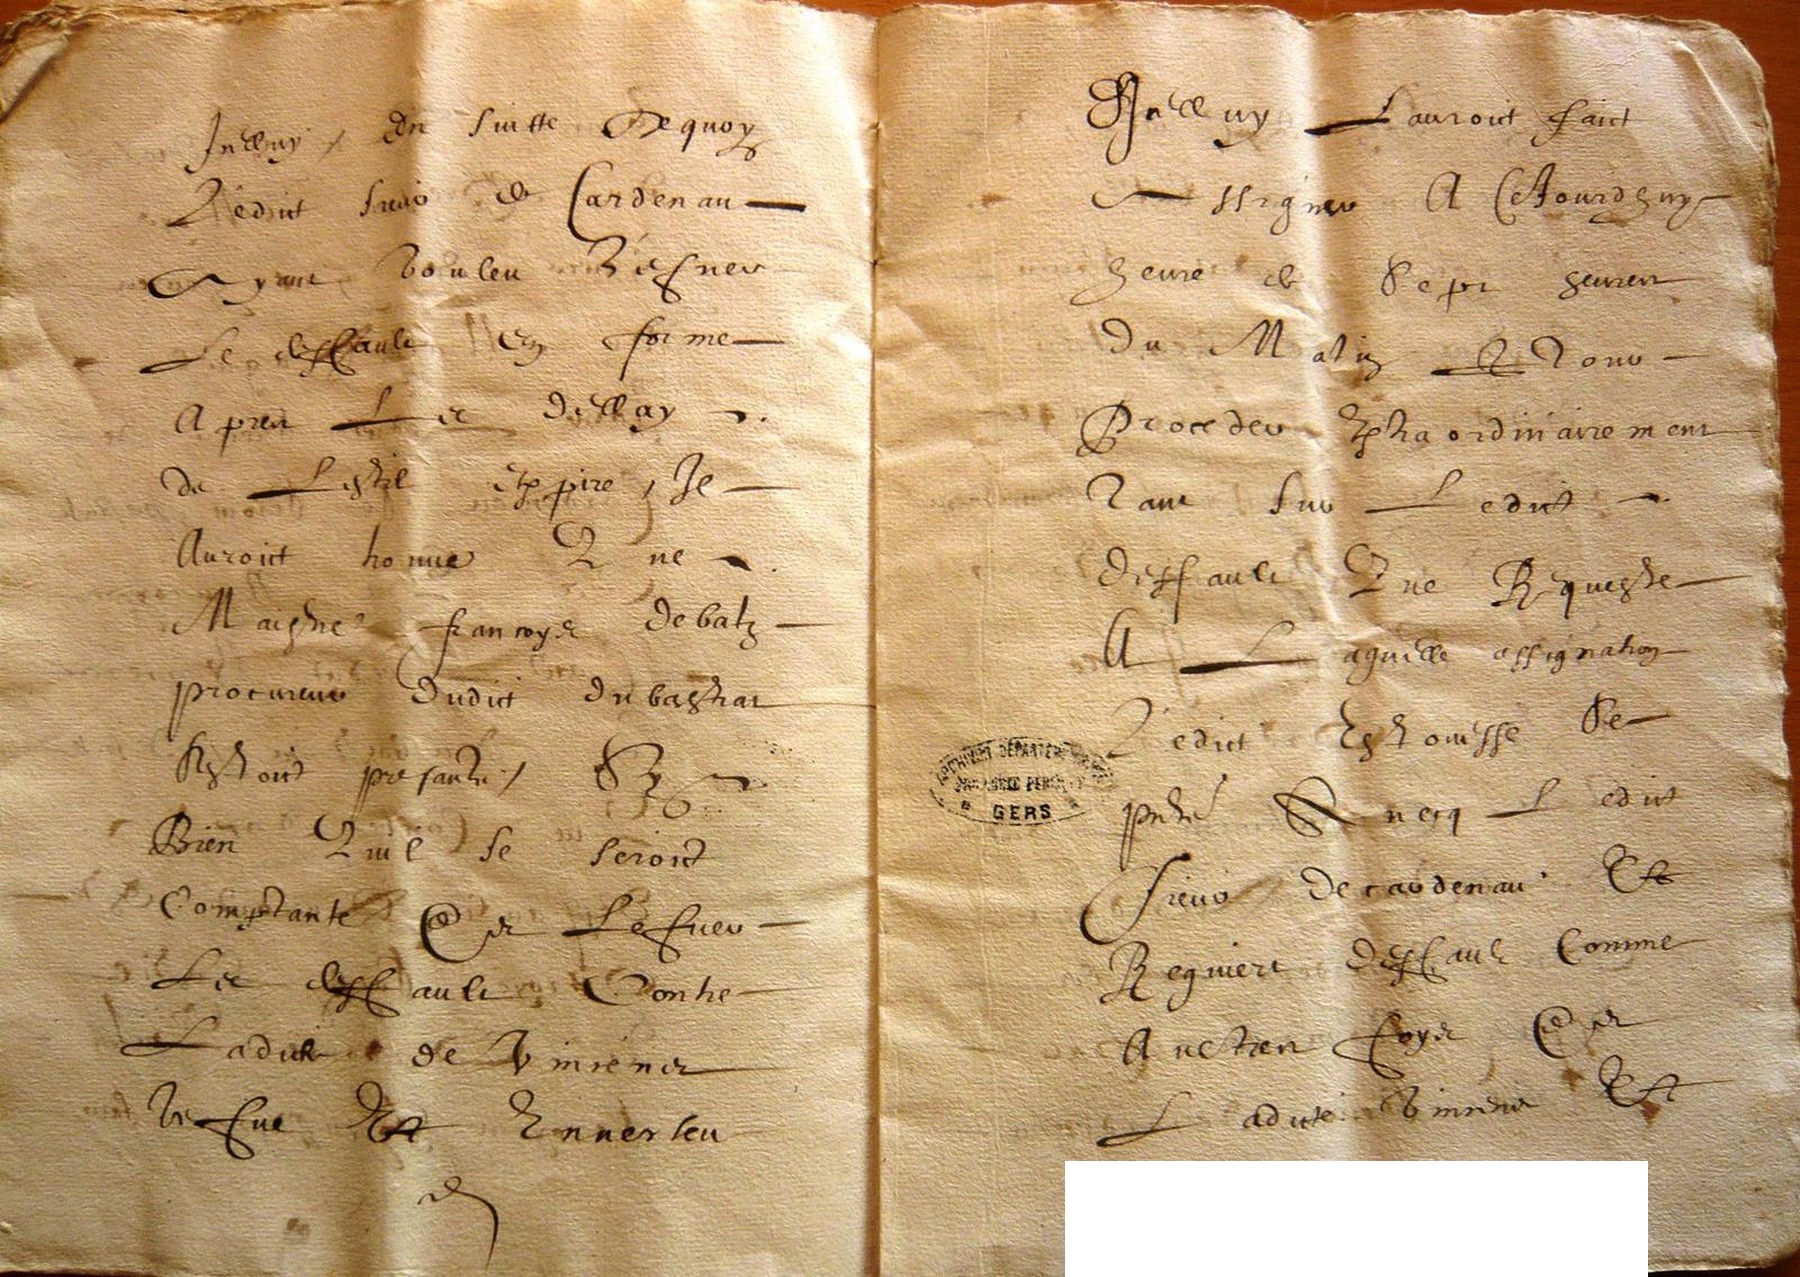 Jcelluy / En suitte Dequoy
Ledict sieur de Cardenau
Ayant Vouleu
Le deffault en forme
Apres Les dellay
de Lestil expire, Je
Auroict Que
Maistre francoys debatz
procureur dudict dubastiat
Estoit presant /
Bien Quil se seroict
Comptante Les
Les deffault Contre
Ladicte de
Vefve Et Envers leu
Jcelluy Lauroict faict
Assigner A Cejourdhuy
heure de Sept heures
du Matin Et Tour
Proceder Extraordinairement
Tant sur Ledict
deffault Que Requeste
A Laquelle assignation
Ledict Estouesse Se
Avecq Ledict
sieur de cardenau Et
Requiert deffault Comme
Ladicte Et
ARCHIVES DÉPARTEMENTALES
GERS